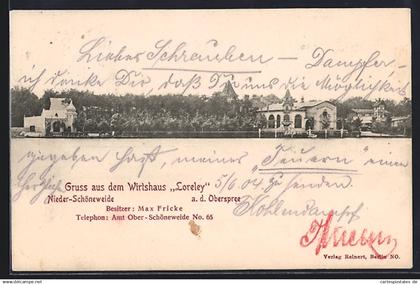 Liebes Schräubchen – Dampfer-
ich danke Dir, daß Du uns die Möglichkeit
gegeben hast, meines „Teuern“ einen
Gruss aus dem Wirtshaus „Loreley“
Nieder-Schöneweide a. d. Oberspree
5/6 04 zu senden.
Besitzer: Max Fricke
Telephon: Amt Ober-Schöneweide No. 65
Kohlendampf
Verlag Reinert, Berlin NO.